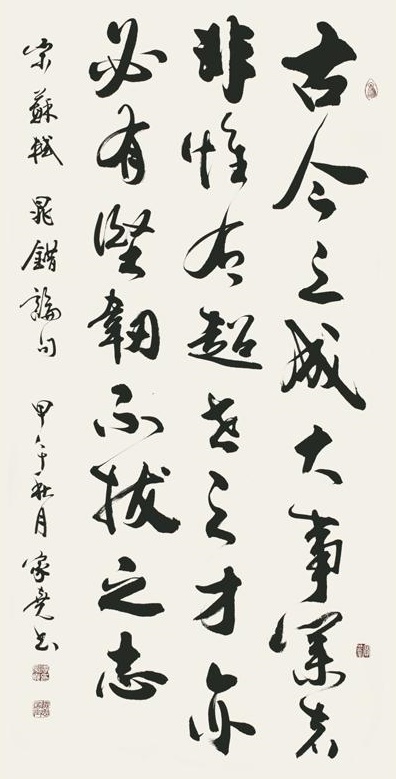 古今之成大事業者
非惟有超世之才亦
必有堅韌不拔之志
宋蘇軾 晁錯論句 甲午秋月 家堯书